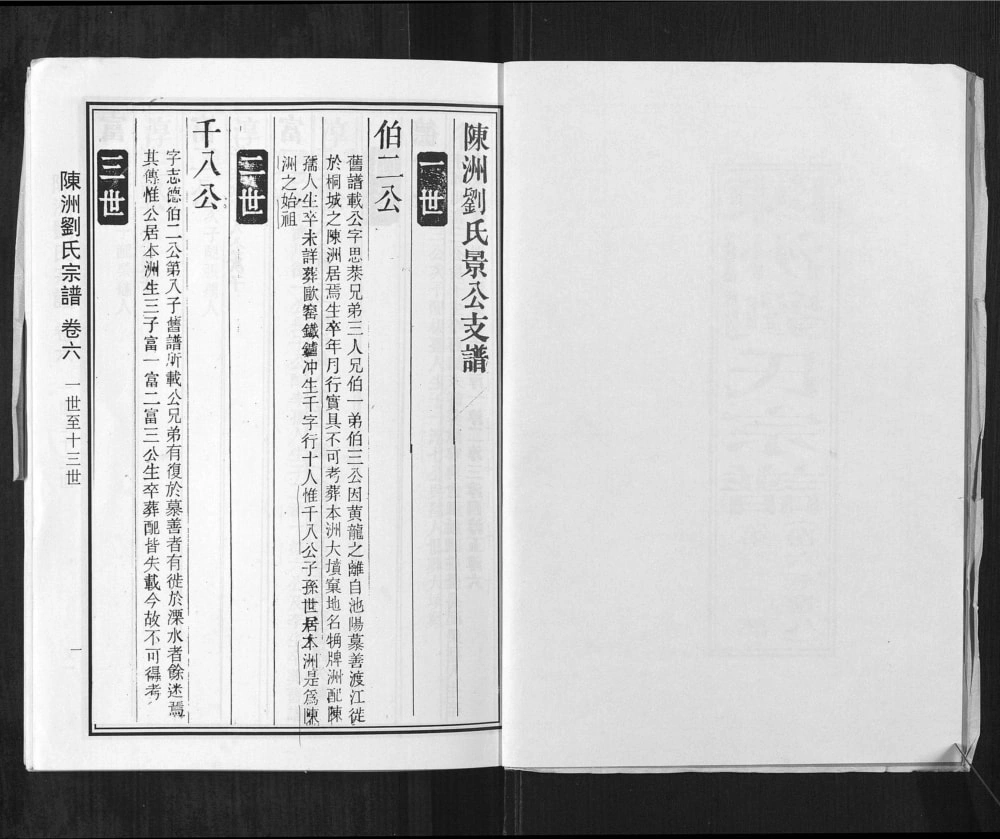 陳洲劉氏景公支譜
一世
伯二公
舊譜載公字思恭兄弟三人兄伯一弟伯三公因黃龍之離自池陽慕善渡江徙
於桐城之陳洲居焉生卒年月行實具不可考葬本洲大墳窠地名犕牌洲配陳
孺人生卒未詳葬歐窰鐵鑪冲生千字行十人惟千八公子孫世居本洲是爲陳
洲之始祖
二世
千八公
字志德伯二公第八子舊譜所載公兄弟有復於慕善者有徙於溧水者餘迷焉
其傳惟公居本洲生三子富一富二富三公生卒葬配皆失載今故不可得考
三世
陳洲劉氏宗譜 卷六 一世至十三世 一